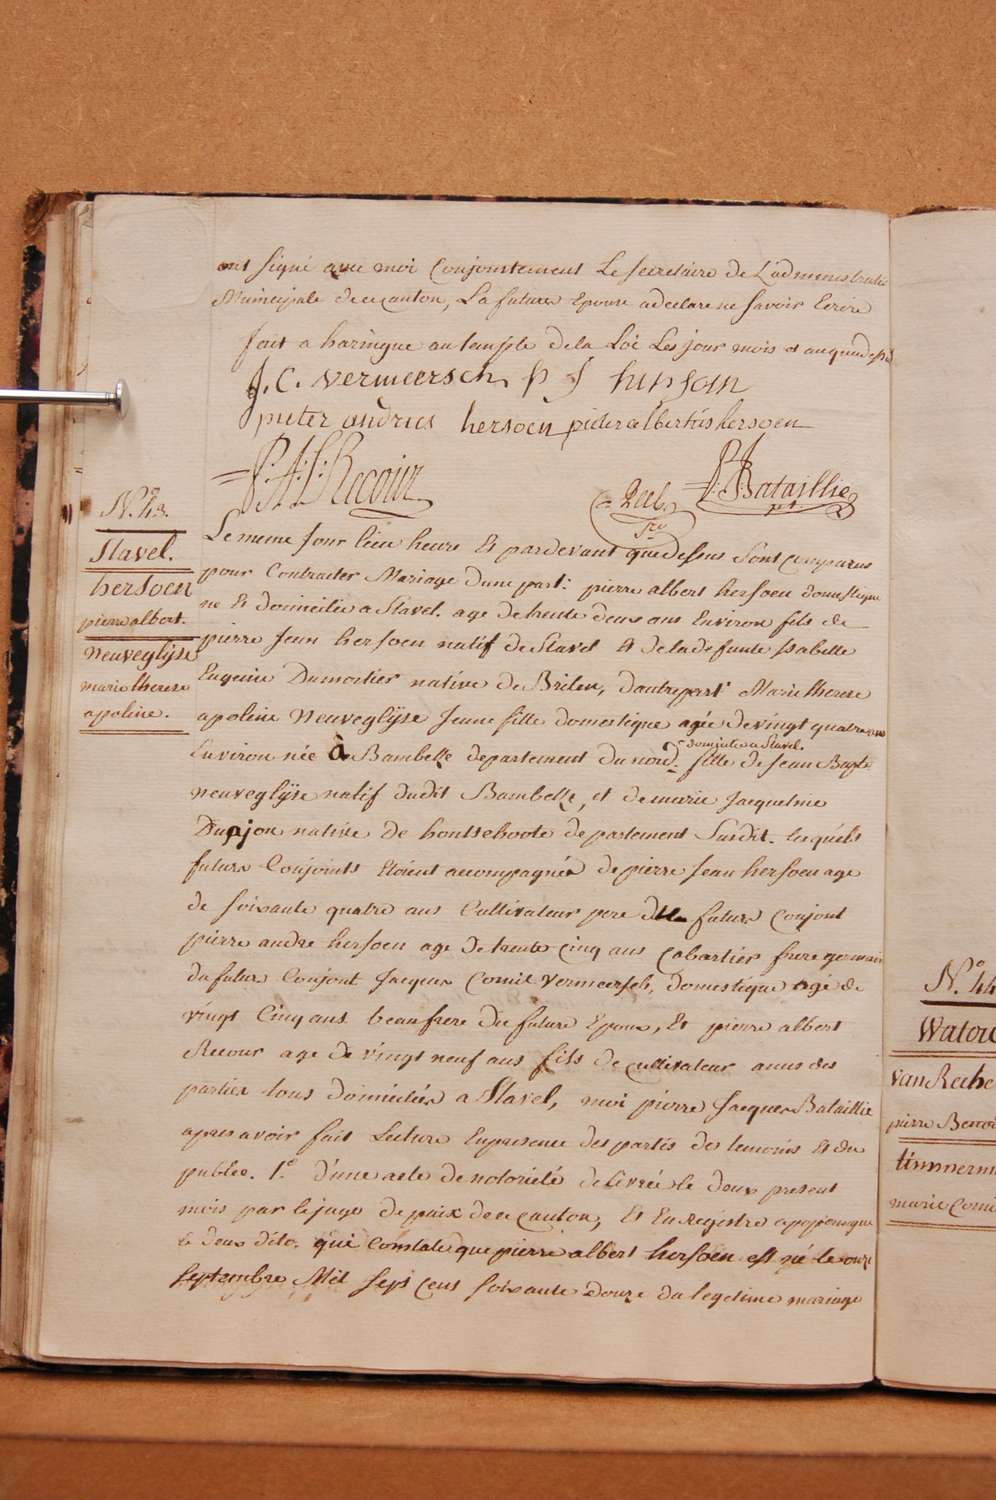 ont signé avec moi Conjointement Le secretaire de L'administration
Municipale de ce canton, La future Epouse a declare ne savoir Ecrire
fait a haringue au temple de la Loi Les jour mois et an que dessus
J. C. vermeersch p J hersoen
pieter andries hersoen pieter albertus hersoen
P: A: L: Recour
P: J: Bataillie
N.º 43.
Stavel.
hersoen
pierre albert.
Neuveglijse
marie therese
apoline.
Le meme Jour lieu heure Et pardevant que dessus Sont comparus
pour Contracter Mariage dune part: pierre albert hersoen domestique
ne Et domicilié a Stavel. age de trente deux ans Environ fils de
pierre Jean hersoen natif de Stavel Et de la defunte isabelle
Eugenie Dumortier native de Brilen, dautre part Marie therese
apoline Neuveglijse Jeune fille domestique agée de vingt quatre ans
Environ née à Bambeke departement du nord. domiciliée a Stavel. fille de Jean Bapt.
neuveglijse natif dudit Bambeke, et de marie Jacqueline
Dupijon native de hontschoote departement Surdit. lesquels
futurs Conjoints Etoient accompagnés de pierre Jean hersoen age
de soixante quatre ans Cultivateur pere du futur conjont
pierre andre hersoen age de trente cinq ans cabartier frere germain
du futur Conjont Jacques Cornil Vermeersch, domestique agé de
vingt Cinq ans beaufrere du future Epoux, Et pierre albert
Recour age de vingt neuf ans fils de cultivateur amis des
parties tous domiciliés a Stavel, moi pierre Jacques Bataillie
apres avoir fait Lecture En presence des partis des temoins Et du
publee. 1.º d'une acte de notoriété delivrée le deux present
mois par le juge de paix de ce canton, Et Enregistre a poperingue
le deux dito. qui Constate que pierre albert hersoen est né le onze
septembre Mil sept cens soixante douze du legetime mariage
N.º 44
Watou
van Reche
pierre Benoi
timmerm
marie Corni